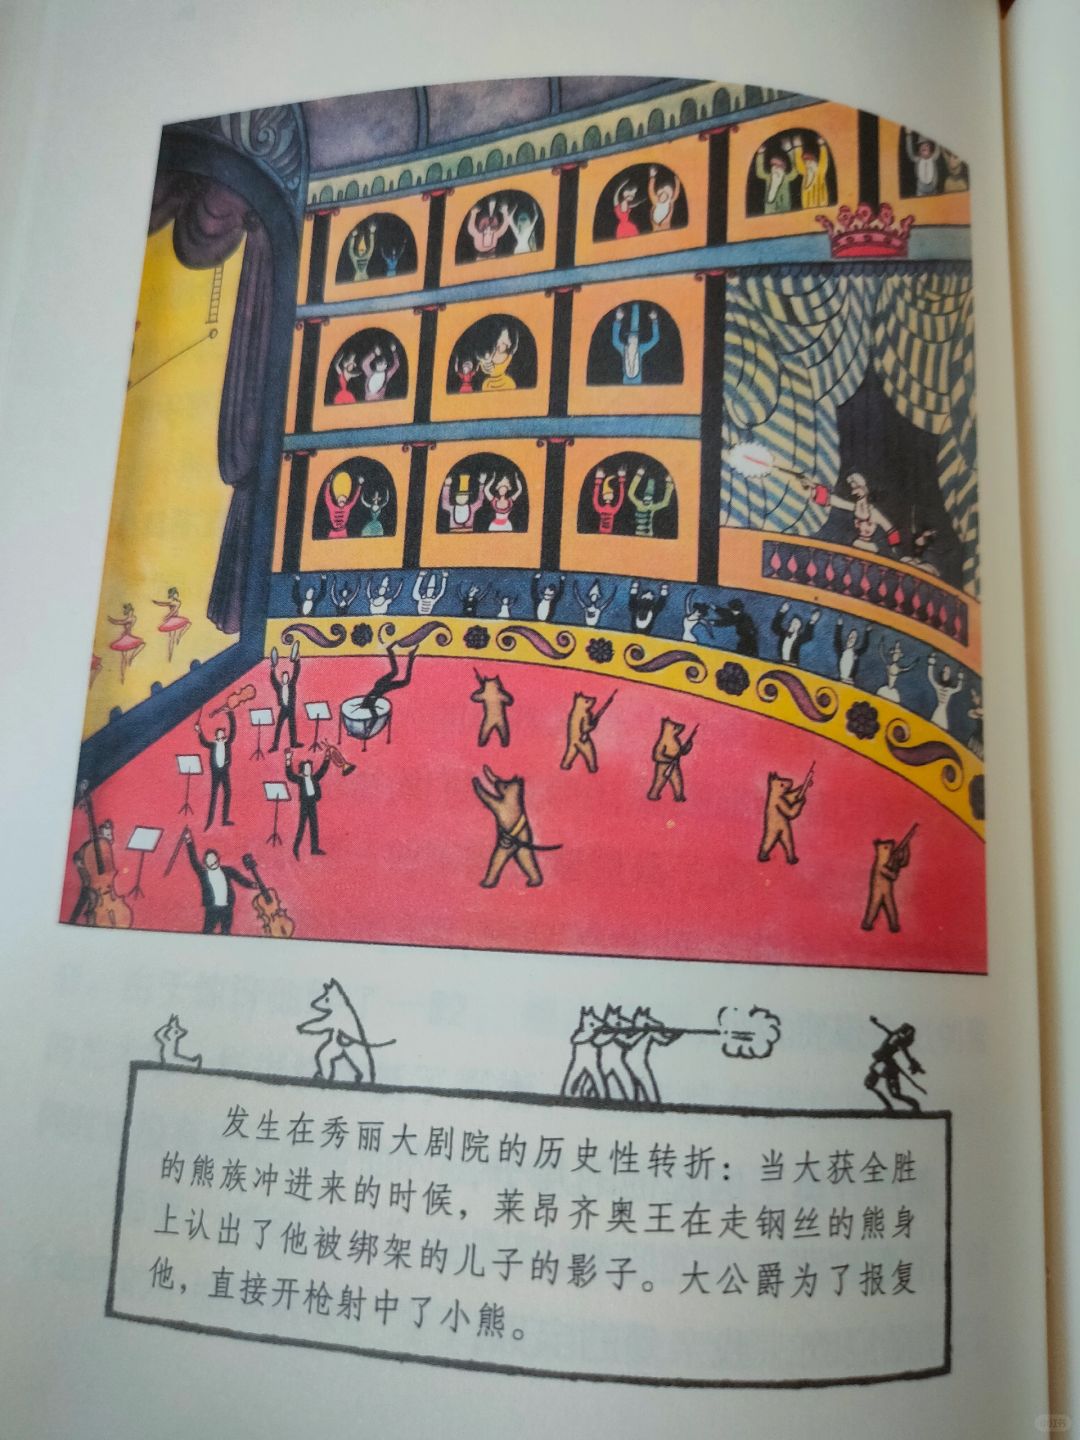 发生在秀丽大剧院的历史性转折：当大获全胜
的熊族冲进来的时候，莱昂齐奥王在走钢丝的熊身
上认出了他被绑架的儿子的影子。大公爵为了报复
他，直接开枪射中了小熊。
小红书